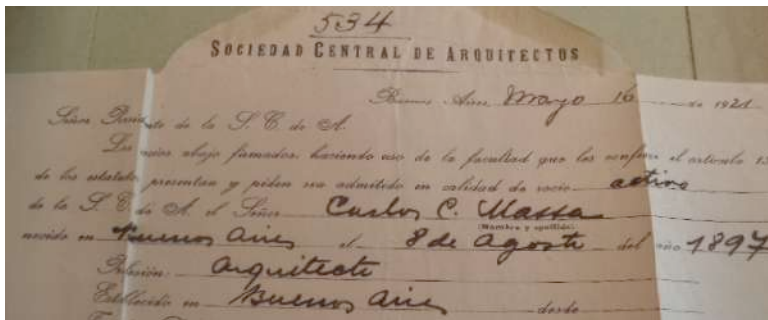 534
SOCIEDAD CENTRAL DE ARQUITECTOS
Buenos Aires Mayo 16 de 1921
Señor Presidente de la S. C. de A.
Los socios abajo firmados, haciendo uso de la facultad que les confiere el artículo 15
de los estatutos presentan y piden sea admitido en calidad de socio activo
de la S. C. de A. el Señor Carlos C. Massa
(Nombre y apellido)
nacido en Buenos Aires el 8 de Agosto del año 1897
Profesión: Arquitecto
Establecido en Buenos Aires desde